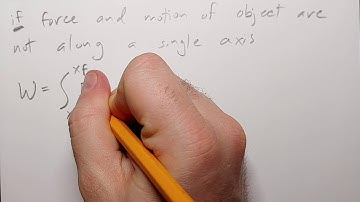 if force and motion of object are
not along a single axis
W = ∫ xf